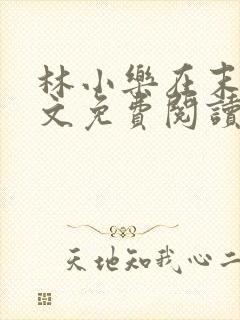 林小樂在末
文免費閱讀
天地知我心二